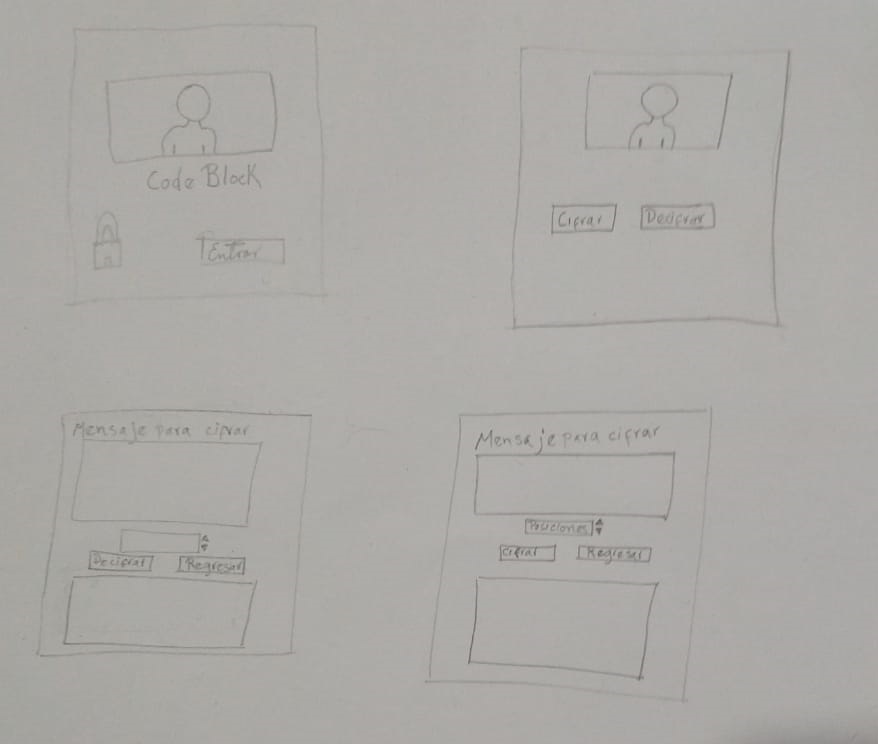 Code Block
Entrar
Cifrar
Decifrar
Mensaje para cifrar
Decifrar
Regresar
Mensaje para cifrar
Posiciones
Cifrar
Regresar